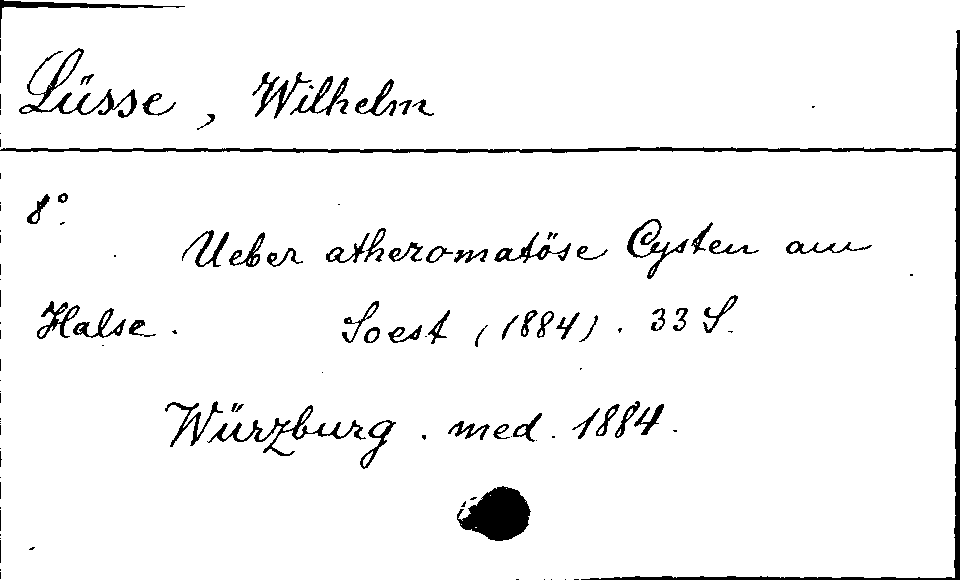 Lüsse, Wilhelm
8°.
Ueber atheromatöse Cysten am
Halse. Soest (1884). 33 S.
Würzburg. med. 1884.